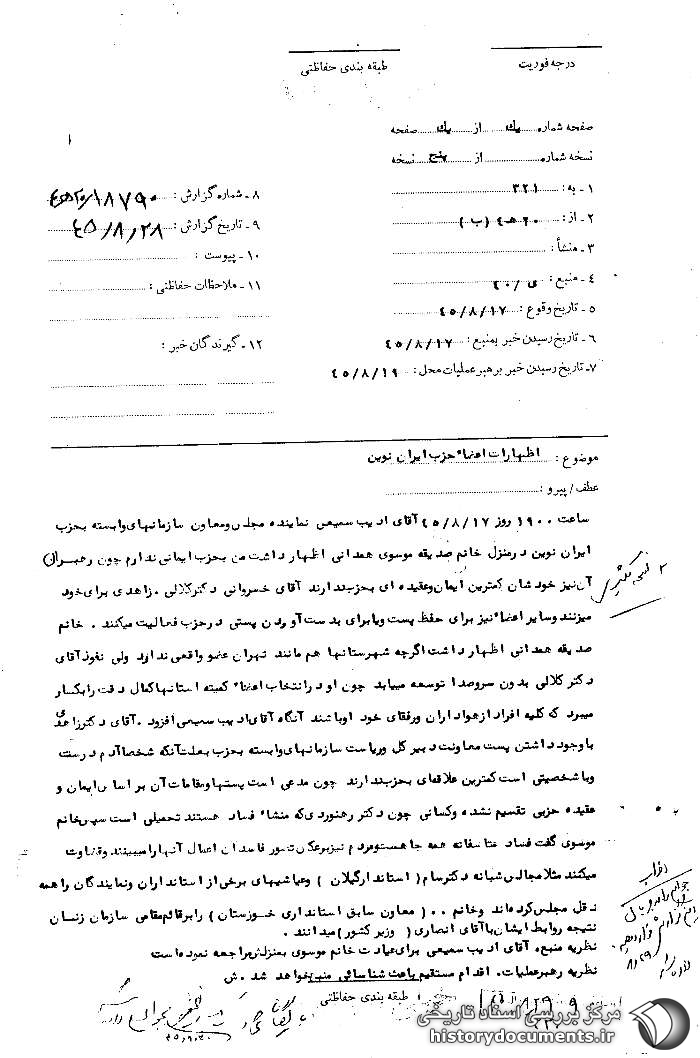 درجه فوریت
طبقه بندی حفاظتی
صفحه شماره یك از یك صفحه
نسخه شماره از پنج نسخه
۱ ـ به : ۳۲۱
۲ ـ از : ۲۰ هـ ٤ (ب)
۳ ـ منشأ :
۴ ـ منبع :
۵ ـ تاریخ وقوع : ٤٥/۸/۱۷
۶ ـ تاریخ رسیدن خبر بمنبع : ٤٥/۸/۱۷
۷ ـ تاریخ رسیدن خبر برهبر عملیات محل : ٤٥/۸/۱۹
۸ ـ شماره گزارش : ۱۸۷۹۰
۹ ـ تاریخ گزارش : ٤٥/۸/۲۸
۱۰ ـ پیوست :
۱۱ ـ ملاحظات حفاظتی :
۱۲ ـ گیرندگان خبر :
موضوع : اظهارات اعضاء حزب ایران نوین
عطف / پیرو :
ساعت ۱۹۰۰ روز ٤٥/۸/۱۷ آقای ادیب سمیعی نماینده مجلس ومعاون سازمانهای وابسته بحزب
ایران نوین در منزل خانم صدیقه موسوی همدانی اظهار داشت من بحزب ایمانی ندارم چون رهبران
آن نیز خودشان کمترین ایمان وعقیده ای بحزب ندارند آقای خسروانی دکتر کلالی . زاهدی برای خود
میزنند وسایر اعضاء نیز برای حفظ پست ویا برای بدست آوردن پستی در حزب فعالیت میکنند . خانم
صدیقه همدانی اظهار داشت اگرچه شهرستانها هم مانند تهران عضو واقعی ندارد ولی نفوذ آقای
دکتر کلالی بدون سروصدا توسعه مییابد چون او در انتخاب اعضاء کمیته استانها کمال دقت را بکار
میبرد که کلیه افراد از هواداران ورفقای خود او باشند آنگاه آقای ادیب سمیعی افزود . آقای دکتر زاهدی
با وجود داشتن پست معاونت دبیر کل وریاست سازمانهای وابسته بحزب بعلت آنکه شخصا آدم درست
وبا شخصیتی است کمترین علاقه ای بحزب ندارند چون مدعی است پستها ومقامات آن بر اساس ایمان و
عقیده حزبی تقسیم نشده وکسانی چون دکتر رهنوردی که منشاء فساد هستند تحمیلی است سپس خانم
موسوی گفت فساد متاسفانه همه جا هست ومردم نیز برعکس تصور فاسدان اعمال آنها را میبینند وقضاوت
میکنند مثلا مجالس شبانه دکتر سام (استاندار گیلان ) وعیاشیهای برخی از استانداران ونمایندگان را همه
نقل مجلس کرده اند وخانم . . ( معاون سابق استانداری خوزستان ) را برقائم مقامی سازمان زنسان
نتیجه روابط ایشان با آقای انصاری ( وزیر کشور ) میدانند .
نظریه منبع. آقای ادیب سمیعی برای عیادت خانم موسوی بمنزلش مراجعه نموده است
نظریه رهبر عملیات. اقدام مستقیم باعث شناسائی منبع خواهد شد . ش
طبقه بندی حفاظتی
مرکز بررسی اسناد تاریخی
historydocuments.ir